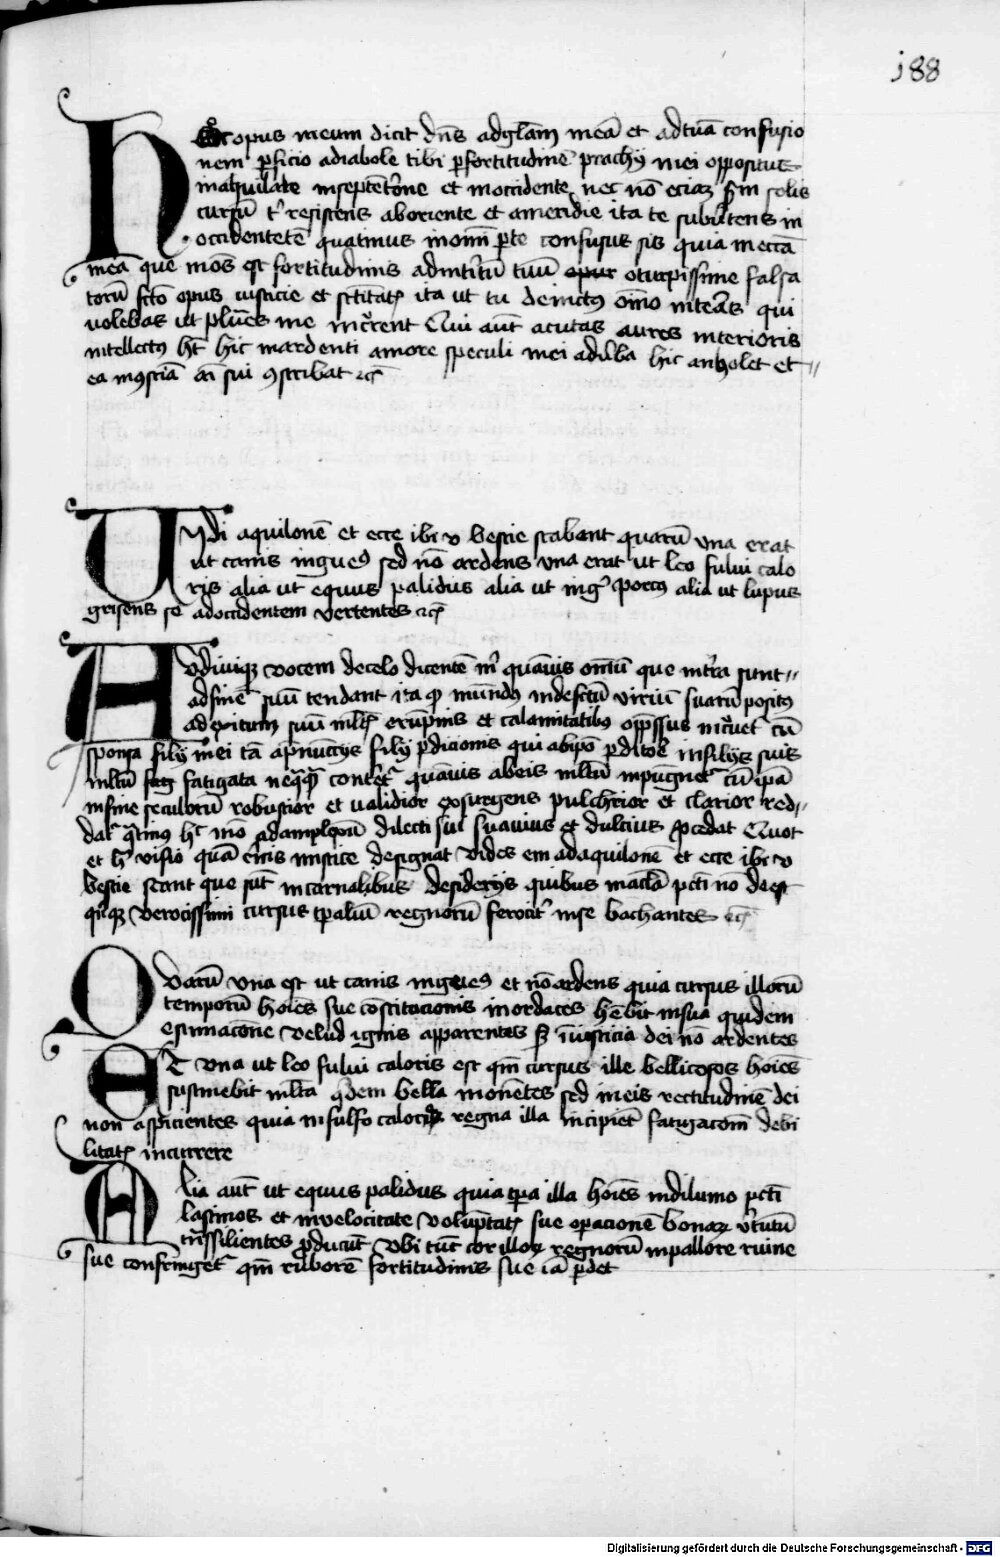 188
Hoc opus meum dicit dns ad glam meã et ad tuã confusio
nem perficio a diabole tibi per fortitudinē brachij mei oppositus
in aquilone in septētrione et in occidente nec nō eciam scdm solis
cursū tibi resistens ab oriente et a meridie ita te subvertens in
occidentetē quatinus in omni parte confusus sis quia in ecclīa
mea que mons est fortitudinis ad interitū tuū o turpissime falsa
torū opus iusticie et sanctitatis ita ut tu deiectus omnino qui
volebas ut plures me Qui aut acutas aures interioris
intellectus hic in ardenti amore speculi mei ad verba hec anhelet et
ea in sui conscribat etc
Vidi aquilonē et ecce ibi v bestie stabant quarū una erat
ut canis igneus sed nō ardens una erat ut leo fului colo
ris alia ut equus palidus alia ut niger porcus alia ut lupus
grisens se ad occidentem vertentes etc
Audiuique vocem de celo dicentē michi quāuis omniū que in terra sunt
ad finē suū tendant ita quod mundus in defectū viriū suarū positus
ad exitum suū multis erumpnis et calamitatibus oppressus incuruet cū
sponsa filij mei tam a prenuncijs filij perdicionis qui ab ipso perditore in filijs suis
multū fatigata nequaquam conteretur quāuis ab eis multū inpugnetur cū ipsa
in fine seculorū robustior et validior exsurgens pulchrior et clarior red
datur quatinus hoc modo ad amplexum dilecti sui suavius et dulcius procedat Quot
et hec visio quā cernis mistice designat Vides em ad aquilonē et ecce ibi v
bestie stant que sunt in carnalibus desiderijs quibus macula pcti nō deest
quinque verocissimi cursus temporaliū regnorū ferociter in se bachantes etc
Quarū una est ut canis igneus et nō ardens quia cursus illorū
temporū hoīes sue constitucionis mordaces habebit in sua quidem
estimacione velud ignis apparentes sed in iusticia dei nō ardentes
Et una ut leo fului coloris est quia cursus ille bellicosos hoīes
sustinebit multa quidem bella mouentes sed in eis rectitudinē dei
non aspicientes quia in fulso colore regna illa incipient fatigacionem debi
litatis incurrere
Alia aut ut equus palidus quia tpa illa hoīes in diluuio pcti
lasciuos et in velocitate voluptatis sue operacionē bonarum virtutū
transsilientes producunt Ubi tunc cor illorum regnorū in pallore ruine
sue confringetur quia ruborē fortitudinis sue iā perdet
Digitalisierung gefördert durch die Deutsche Forschungsgemeinschaft - DFG